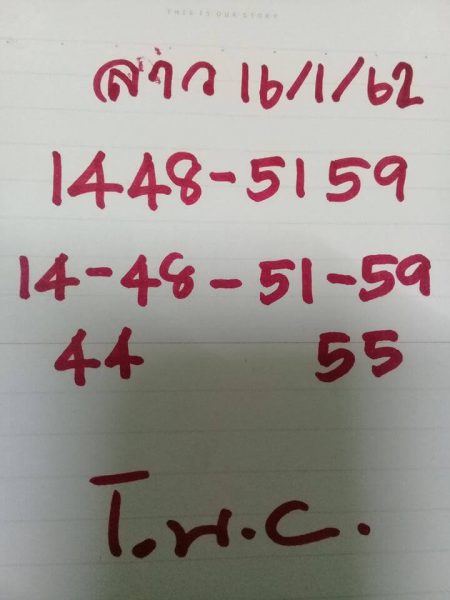 THIS IS OUR STORY
ล่าว 16/1/62
1448-5159
14-48-51-59
44 55
T.N.C.